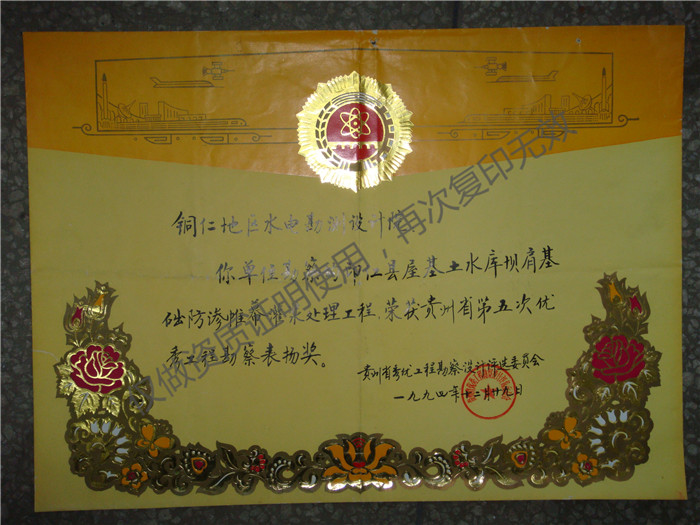 铜仁地区水电勘测设计院
你单位勘察的印江县屋基土水库坝肩基
础防渗帷幕灌水处理工程、荣获贵州省第五次优
秀工程勘察表扬奖。
贵州省秀优工程勘察设计评选委员会
一九九四年十二月十九日
仅做资质证明使用，再次复印无效